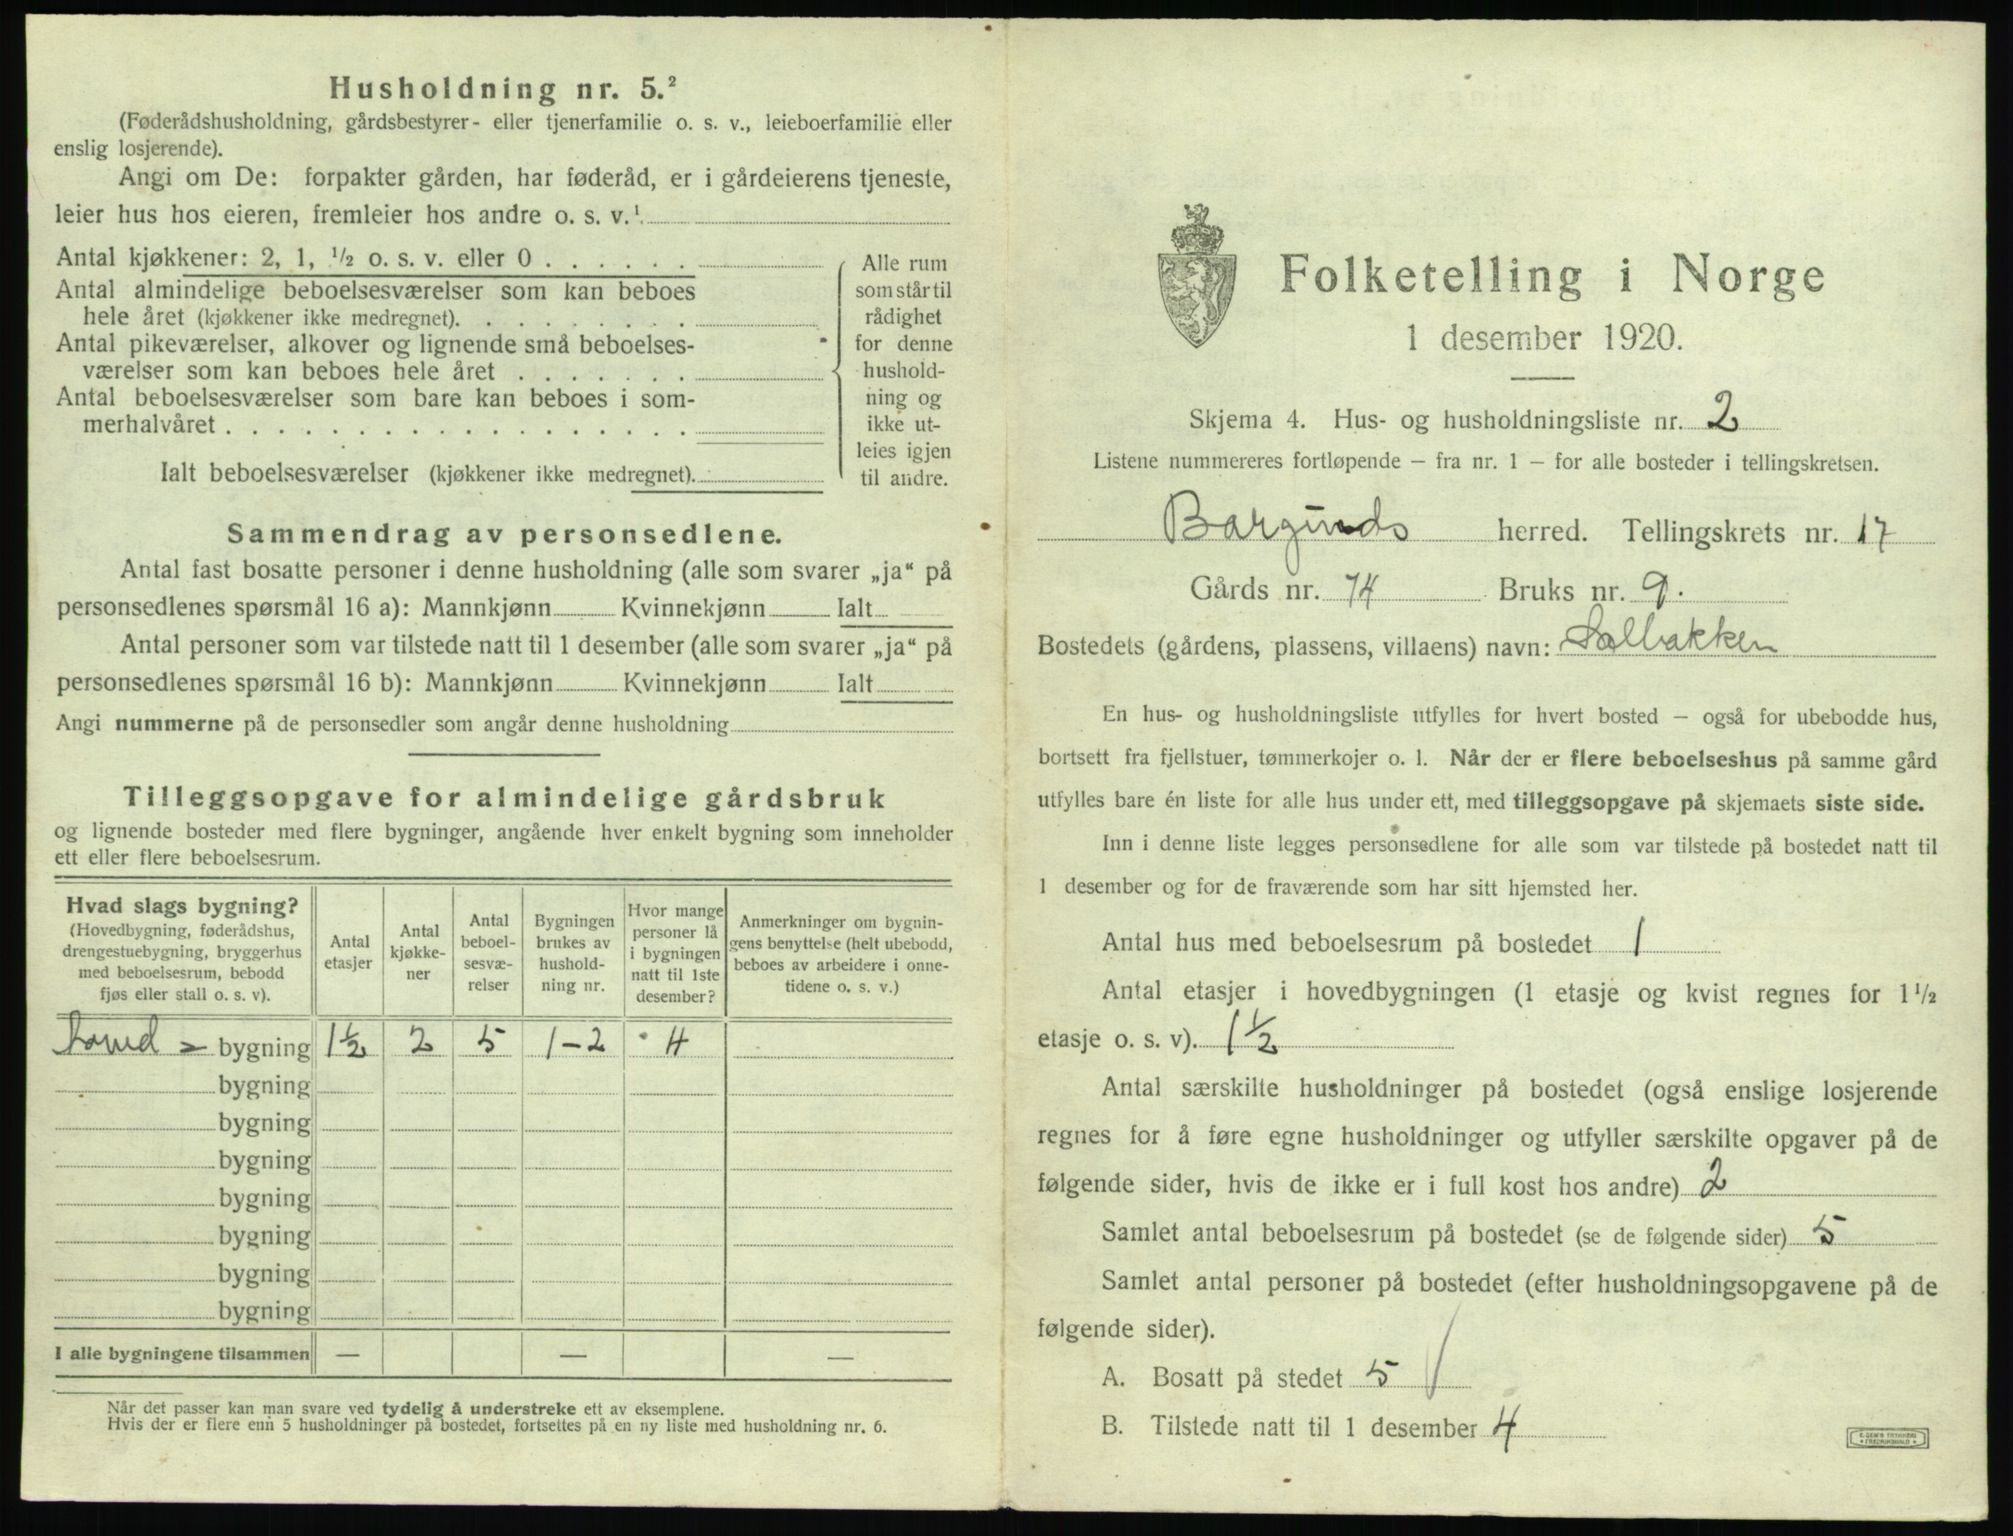 Husholdning nr. 5.²
(Føderådshusholdning, gårdsbestyrer- eller tjenerfamilie o. s. v., leieboerfamilie eller
enslig losjerende).
Angi om De: forpakter gården, har føderåd, er i gårdeierens tjeneste,
leier hus hos eieren, fremleier hos andre o. s. v.¹
Antal kjøkkener: 2, 1, ½ o. s. v. eller 0 . . . . . .
Antal almindelige beboelsesværelser som kan beboes
hele året (kjøkkener ikke medregnet). . . . . . . . .
Antal pikeværelser, alkover og lignende små beboelses-
værelser som kan beboes hele året . . . . . . .
Antal beboelsesværelser som bare kan beboes i som-
merhalvåret . . . . . . . . . . . . . . . . . .
Ialt beboelsesværelser (kjøkkener ikke medregnet).
Alle rum
som står til
rådighet
for denne
hushold-
ning og
ikke ut-
leies igjen
til andre.
Sammendrag av personsedlene.
Antal fast bosatte personer i denne husholdning (alle som svarer „ja“ på
personsedlenes spørsmål 16 a): Mannkjønn Kvinnekjønn Ialt
Antal personer som var tilstede natt til 1 desember (alle som svarer „ja“ på
personsedlenes spørsmål 16 b): Mannkjønn Kvinnekjønn Ialt
Angi nummerne på de personsedler som angår denne husholdning
Tilleggsopgave for almindelige gårdsbruk
og lignende bosteder med flere bygninger, angående hver enkelt bygning som inneholder
ett eller flere beboelsesrum.
Hvad slags bygning?
(Hovedbygning, føderådshus,
drengestuebygning, bryggerhus
med beboelsesrum, bebodd
fjøs eller stall o. s. v).
Antal
etasjer
Antal
kjøkke-
ner
Antal
beboel-
sesvæ-
relser
Bygningen
brukes av
hushold-
ning nr.
Hvor mange
personer lå
i bygningen
natt til 1ste
desember?
Anmerkninger om bygnin-
gens benyttelse (helt ubebodd,
beboes av arbeidere i onne-
tidene o. s. v.)
bygning 1½ 2 5 1-2 4
bygning
bygning
bygning
bygning
bygning
bygning
bygning
I alle bygningene tilsammen — — —
Når det passer kan man svare ved tydelig å understreke ett av eksemplene.
Hvis der er flere enn 5 husholdninger på bostedet, fortsettes på en ny liste med husholdning nr. 6.
Folketelling i Norge
1 desember 1920.
Skjema 4. Hus- og husholdningsliste nr. 2
Listene nummereres fortløpende – fra nr. 1 – for alle bosteder i tellingskretsen.
Borgunds herred. Tellingskrets nr. 17
Gårds nr. 74 Bruks nr. 9.
Bostedets (gårdens, plassens, villaens) navn: Solbakken
En hus- og husholdningsliste utfylles for hvert bosted – også for ubebodde hus,
bortsett fra fjellstuer, tømmerkojer o. l. Når der er flere beboelseshus på samme gård
utfylles bare én liste for alle hus under ett, med tilleggsopgave på skjemaets siste side.
Inn i denne liste legges personsedlene for alle som var tilstede på bostedet natt til
1 desember og for de fraværende som har sitt hjemsted her.
Antal hus med beboelsesrum på bostedet 1
Antal etasjer i hovedbygningen (1 etasje og kvist regnes for 1½
etasje o. s. v). 1½
Antal særskilte husholdninger på bostedet (også enslige losjerende
regnes for å føre egne husholdninger og utfyller særskilte opgaver på de
følgende sider, hvis de ikke er i full kost hos andre) 2
Samlet antal beboelsesrum på bostedet (se de følgende sider) 5
Samlet antal personer på bostedet (efter husholdningsopgavene på de
følgende sider).
A. Bosatt på stedet 5
B. Tilstede natt til 1 desember 4